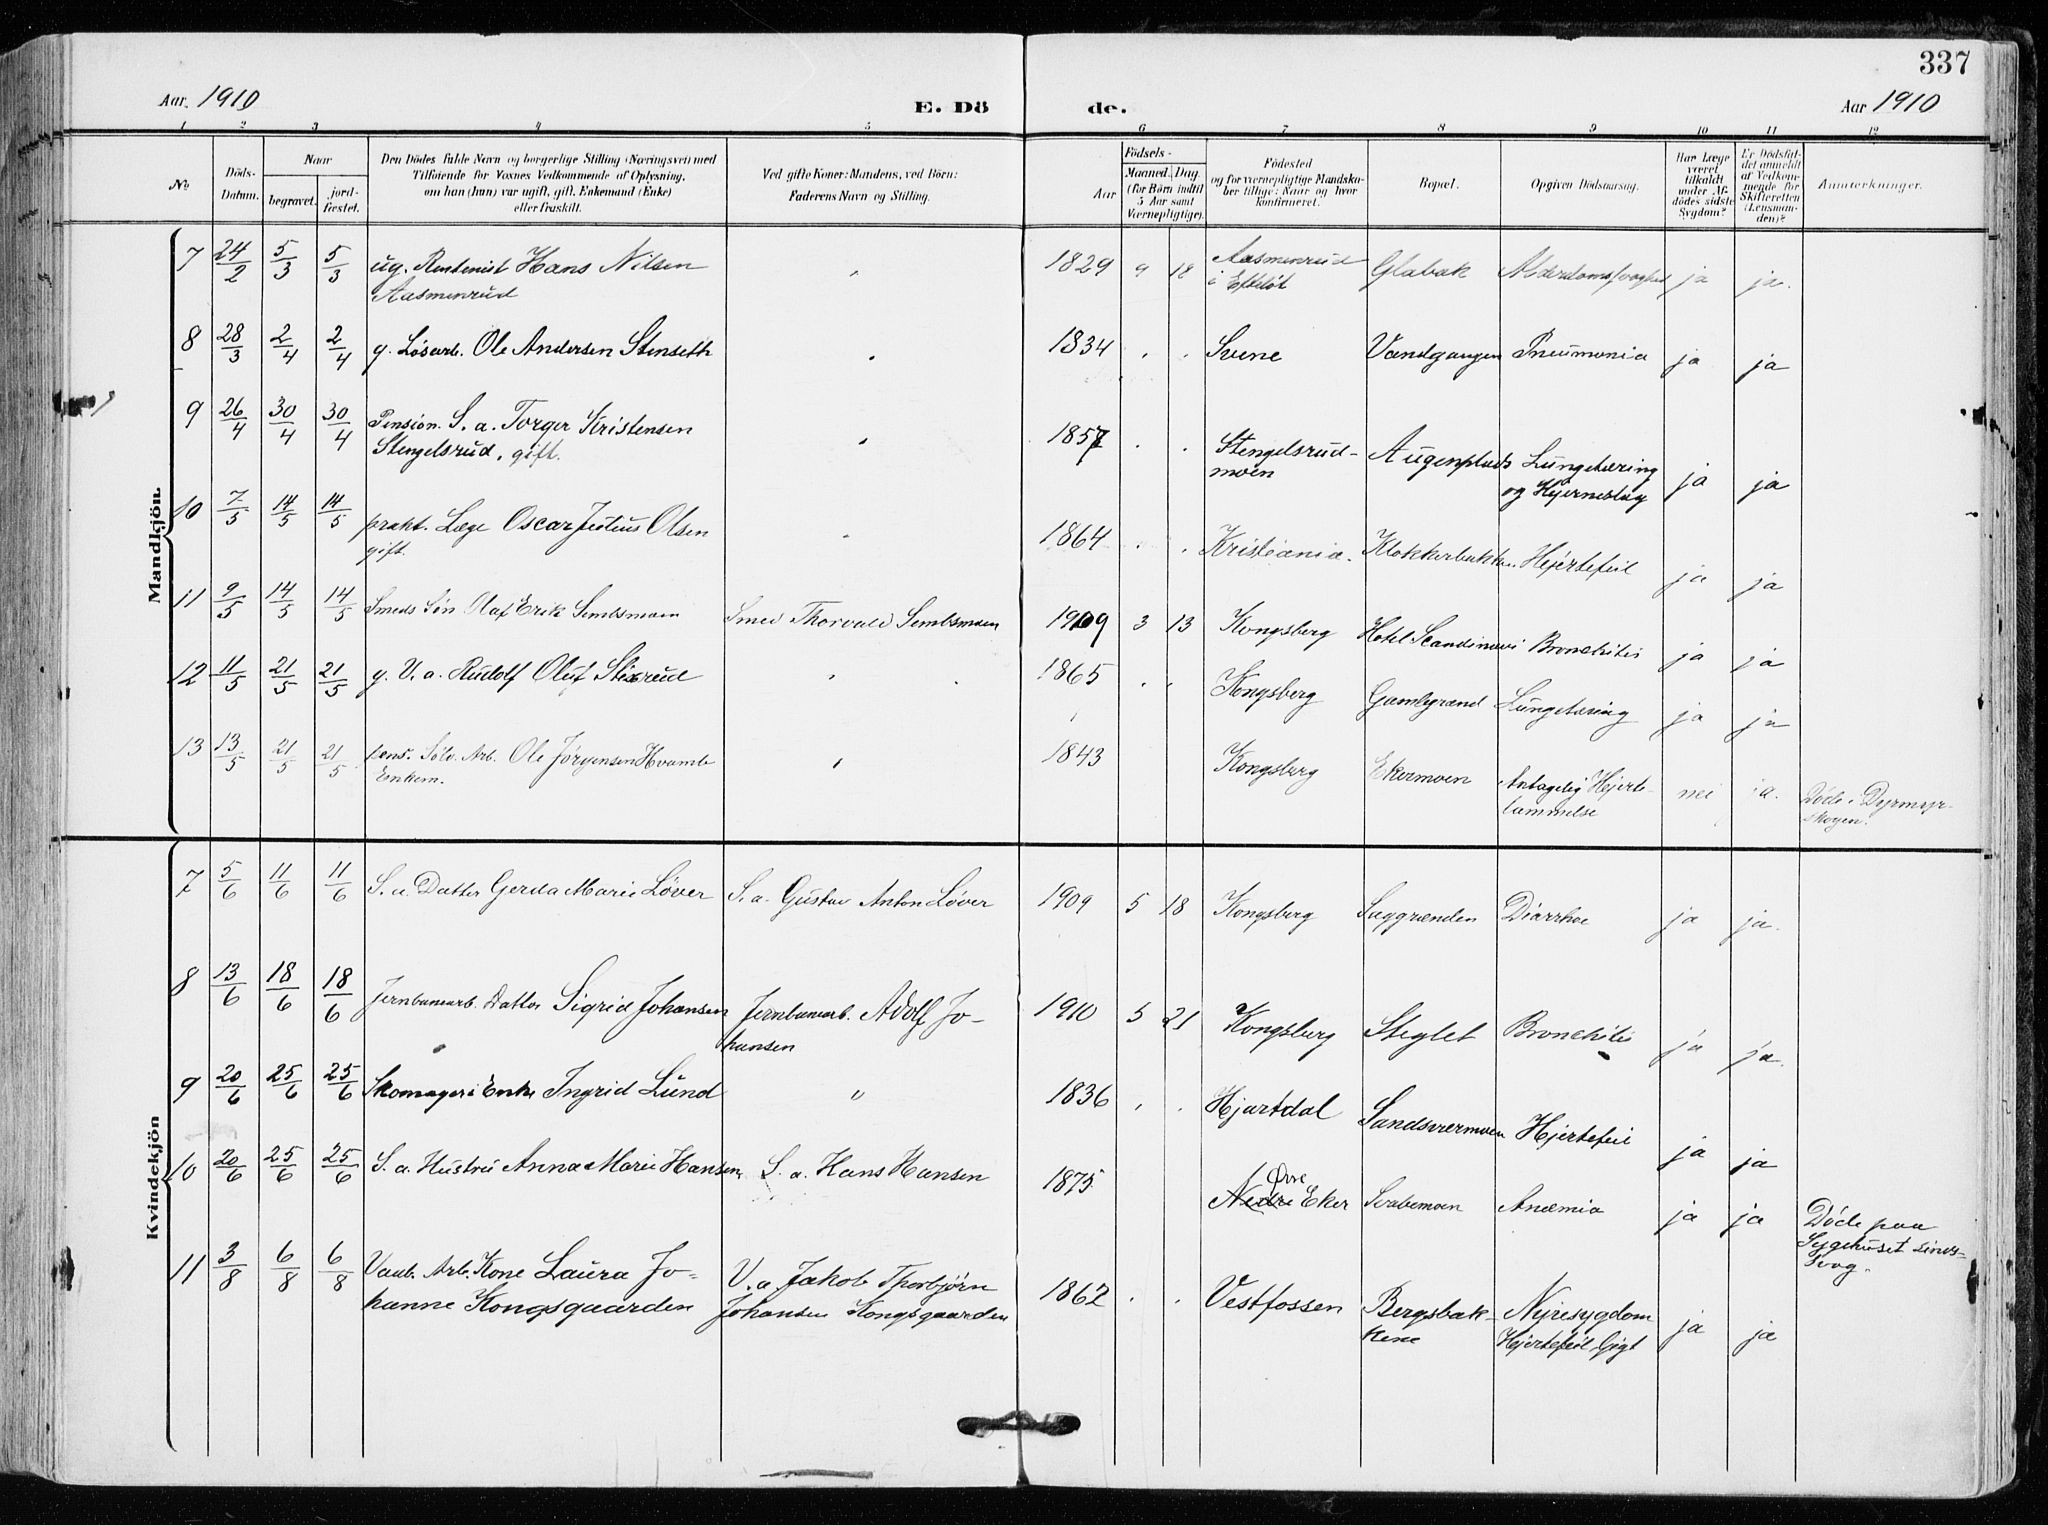 337
Aar. 1910 E. Dö de. Aar 1910
1 2 3 4 5 6 7 8 9 10 11 12
No
Döds-Datum.
Naar
begravet.
jord-fæstet.
Den Dödes fulde Navn og borgerlige Stilling (Næringsvei) med
Tilföiende for Voxnes Vedkommende af Oplysning,
om han (hun) var ugift, gift, Enkemand (Enke)
eller fraskilt.
Ved gifte Koner: Mandens, ved Börn:
Faderens Navn og Stilling.
Aar
Födsels-
Maaned. Dag.
(for Börn indtil
5 Aar samt
Værnepligtige).
Födested
og for værnepligtige Mandska-
ber tillige: Naar og hvor
konfirmeret.
Bopæl.
Opgiven Dödsaarsag.
Har Læge
været
tilkaldt
under Af-
dödes sidste
Sygdom?
Er Dödsfal-
det anmeldt
af Vedkom-
mende for
Skifteretten
(Lensman-
den)?
Anmærkninger.
Mandkjön.
7 24/2 5/3 5/3 ug. Rentenist Hans Nilsen 〃 1829 9 18 Aasmenrud Glabak Alderdomssvaghed ja ja.
Aasmenrud i Efteløt
8 28/3 2/4 2/4 g. Løsarb. Ole Andersen Stenseth 〃 1834 〃 〃 Svene Vandgangen Pneumonia ja ja
9 26/4 30/4 30/4 Pension. S. a. Torger Kristensen 〃 1857 〃 〃 Stengelsrud- Augenplads Lungetæring ja ja
Stengelsrud, gift. moen og Hjerneslag
10 7/5 14/5 14/5 prakt. Læge Oscar Justus Olsen 〃 1864 〃 〃 Kristiania. Klokkerbakken Hjertefeil ja ja
gift.
11 9/5 14/5 14/5 Smeds Søn Olaf Erik Sembsmoen Smed Thorvald Sembsmoen 1909 3 13 Kongsberg Hotel Scandinavi Bronchitis ja ja
12 11/5 21/5 21/5 g. V. a. Rudolf Oluf Stixrud 〃 1865 〃 〃 Kongsberg Gamlegrænd Lungetæring ja ja
13 13/5 21/5 21/5 pens. Sølv. Arb. Ole Jørgensen Hvamb 〃 1843 Kongsberg Ekermoen Antagelig Hjerte- nei ja. Døde i Dyrmyr-
Enkem. lammelse skogen.
Kvindekjön
7 5/6 11/6 11/6 S. a. Datter Gerda Marie Løver S. a. Gustav Anton Løver 1909 5 18 Kongsberg Saggrænden Diarrhoe ja ja.
8 13/6 18/6 18/6 Jernbanearb. Datter Sigrid Johansen Jernbanearb. Adolf Jo- 1910 5 21 Kongsberg Steglet Bronchitis ja ja.
hansen
9 20/6 25/6 25/6 Skomager Enke Ingrid Lund 〃 1836 〃 〃 Hjartdal Sandsværmoen Hjertefeil ja ja
10 20/6 25/6 25/6 S. a. Hustru Anna Marie Hansen S. a. Hans Hansen 1875 Øvre Nedre Eker Svabemoen Anæmia ja ja Døde paa
Sygehuset
11 3/8 6/8 6/8 Vaab. Arb. Kone Laura Jo- V. a Jakob Thorbjørn 1862 〃 〃 Vestfossen Bergsbak- Nyresygdom ja ja
hanne Kongsgaarden Johansen Kongsgaarden kene Hjertefeil, Gigt